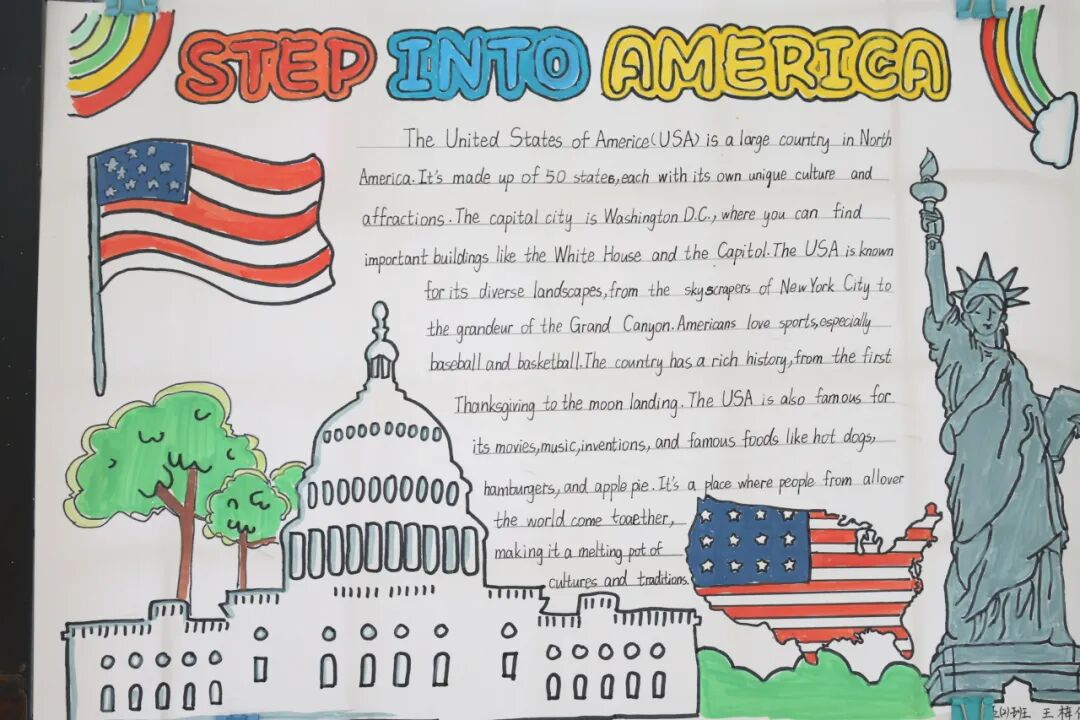 STEP INTO AMERICA
The United States of America(USA) is a large country in North
America. It's made up of 50 states, each with its own unique culture and
affractions. The capital city is Washington D.C., where you can find
important buildings like the White House and the Capitol. The USA is known
for its diverse landscapes, from the skyscrapers of New York City to
the grandeur of the Grand Canyon. Americans love sports, especially
baseball and basketball. The country has a rich history, from the first
Thanksgiving to the moon landing. The USA is also famous for
its movies, music, inventions, and famous foods like hot dogs,
hamburgers, and apple pie. It's a place where people from all over
the world come together,
making it a melting pot of
cultures and traditions.
班 王